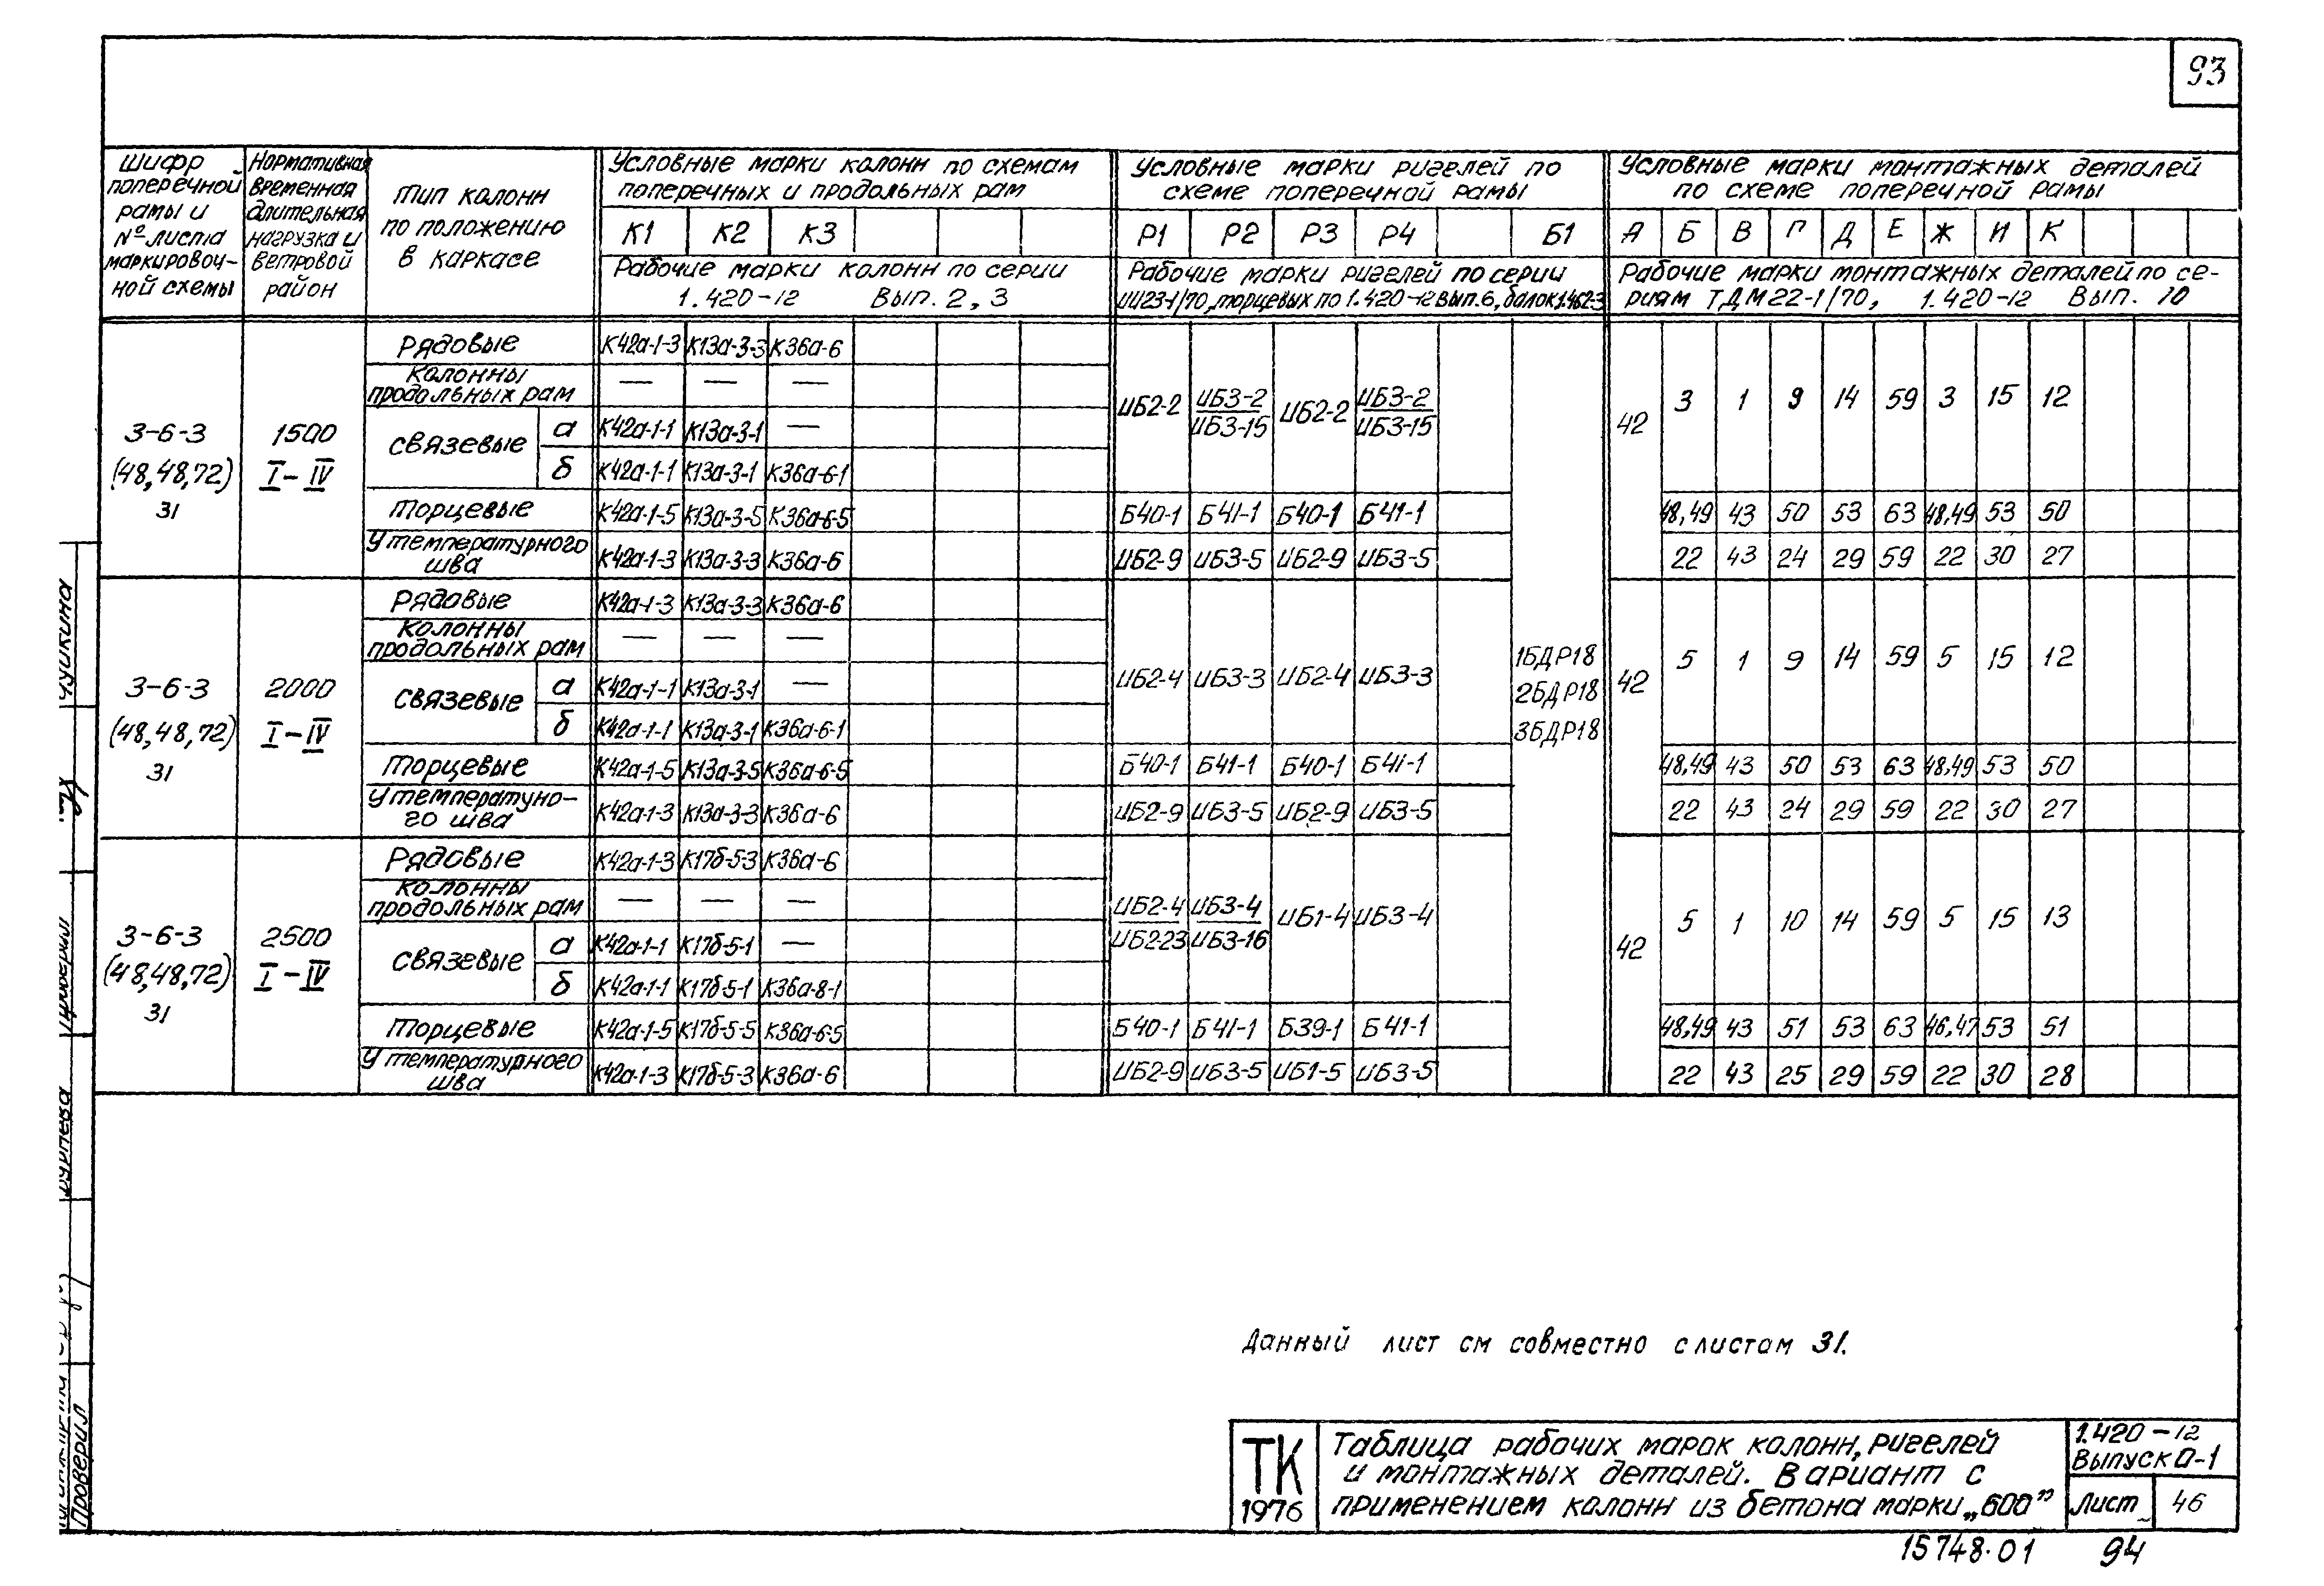 93
Шифр поперечной рамы и № листа маркировочной схемы
Нормативная временная длительная нагрузка и ветровой район
Тип колонн по положению в каркасе
Условные марки колонн по схемам поперечных и продольных рам
К1 К2 К3
Рабочие марки колонн по серии 1.420-12 Вып. 2, 3
Условные марки ригелей по схеме поперечной рамы
Р1 Р2 Р3 Р4 Б1
Рабочие марки ригелей по серии ИИ23-1/70, торцевых по 1.420-12 вып. 6, балок 1.462-3
Условные марки монтажных деталей по схеме поперечной рамы
А Б В Г Д Е Ж И К
Рабочие марки монтажных деталей по сериям ТДМ22-1/70, 1.420-12 Вып. 10
3-6-3 (48,48,72) 31
1500 I-IV
Рядовые К42а-1-3 К13а-3-3 К36а-6
Колонны продольных рам — — —
Связевые а К42а-1-1 К13а-3-1 —
б К42а-1-1 К13а-3-1 К36а-6-1
ИБ2-2 ИБ3-2 ИБ3-15 ИБ2-2 ИБ3-2 ИБ3-15
42 3 1 9 14 59 3 15 12
Торцевые К42а-1-5 К13а-3-5 К36а-6-5 Б40-1 Б41-1 Б40-1 Б41-1 48,49 43 50 53 63 48,49 53 50
У температурного шва К42а-1-3 К13а-3-3 К36а-6 ИБ2-9 ИБ3-5 ИБ2-9 ИБ3-5 22 43 24 29 59 22 30 27
3-6-3 (48,48,72) 31
2000 I-IV
Рядовые К42а-1-3 К13а-3-3 К36а-6
Колонны продольных рам — — —
Связевые а К42а-1-1 К13а-3-1 —
б К42а-1-1 К13а-3-1 К36а-6-1
ИБ2-4 ИБ3-3 ИБ2-4 ИБ3-3
1БДР18
2БДР18
3БДР18
42 5 1 9 14 59 5 15 12
Торцевые К42а-1-5 К13а-3-5 К36а-6-5 Б40-1 Б41-1 Б40-1 Б41-1 48,49 43 50 53 63 48,49 53 50
У температуно-го шва К42а-1-3 К13а-3-3 К36а-6 ИБ2-9 ИБ3-5 ИБ2-9 ИБ3-5 22 43 24 29 59 22 30 27
3-6-3 (48,48,72) 31
2500 I-IV
Рядовые К42а-1-3 К17б-5-3 К36а-6
Колонны продольных рам — — —
Связевые а К42а-1-1 К17б-5-1 —
б К42а-1-1 К17б-5-1 К36а-8-1
ИБ2-4 ИБ2-23 ИБ3-4 ИБ3-16 ИБ1-4 ИБ3-4
42 5 1 10 14 59 5 15 13
Торцевые К42а-1-5 К17б-5-5 К36а-6-5 Б40-1 Б41-1 Б39-1 Б41-1 48,49 43 51 53 63 46,47 53 51
У температурного шва К42а-1-3 К17б-5-3 К36а-6 ИБ2-9 ИБ3-5 ИБ1-5 ИБ3-5 22 43 25 29 59 22 30 28
Данный лист см совместно с листом 31.
ТК
1976
Таблица рабочих марок колонн, ригелей
и монтажных деталей. Вариант с
применением колонн из бетона марки „600”
1.420-12
Выпуск 0-1
Лист 46
15748·01 94
Чушкина
Проверил